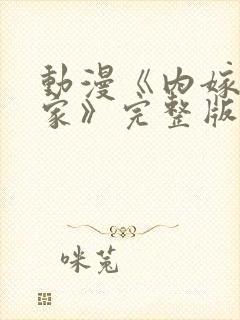 動漫《内嫁
家》完整版
咪兔